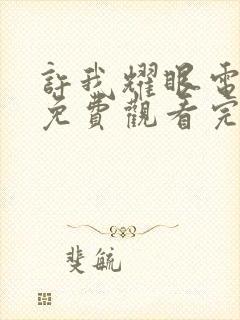 許我耀眼電
免費觀看完
斐毓